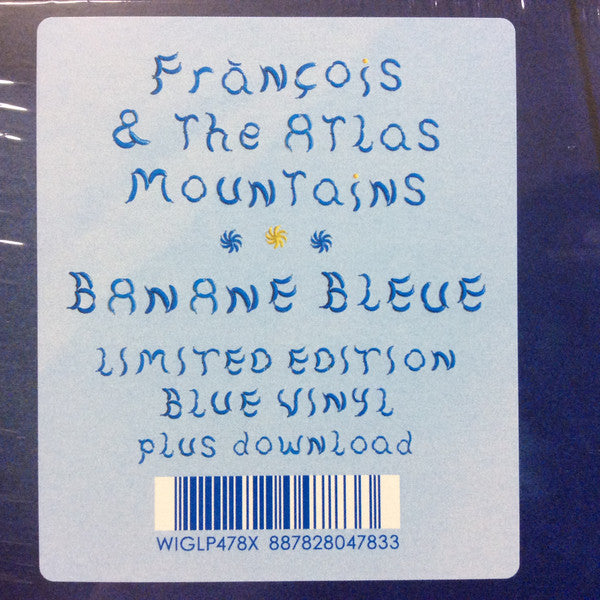 Frànçois
& The Atlas
Mountains
BANANE BLEUE
LIMITED EDITION
BLUE VINYL
plus download
WIGLP478X 887828047833